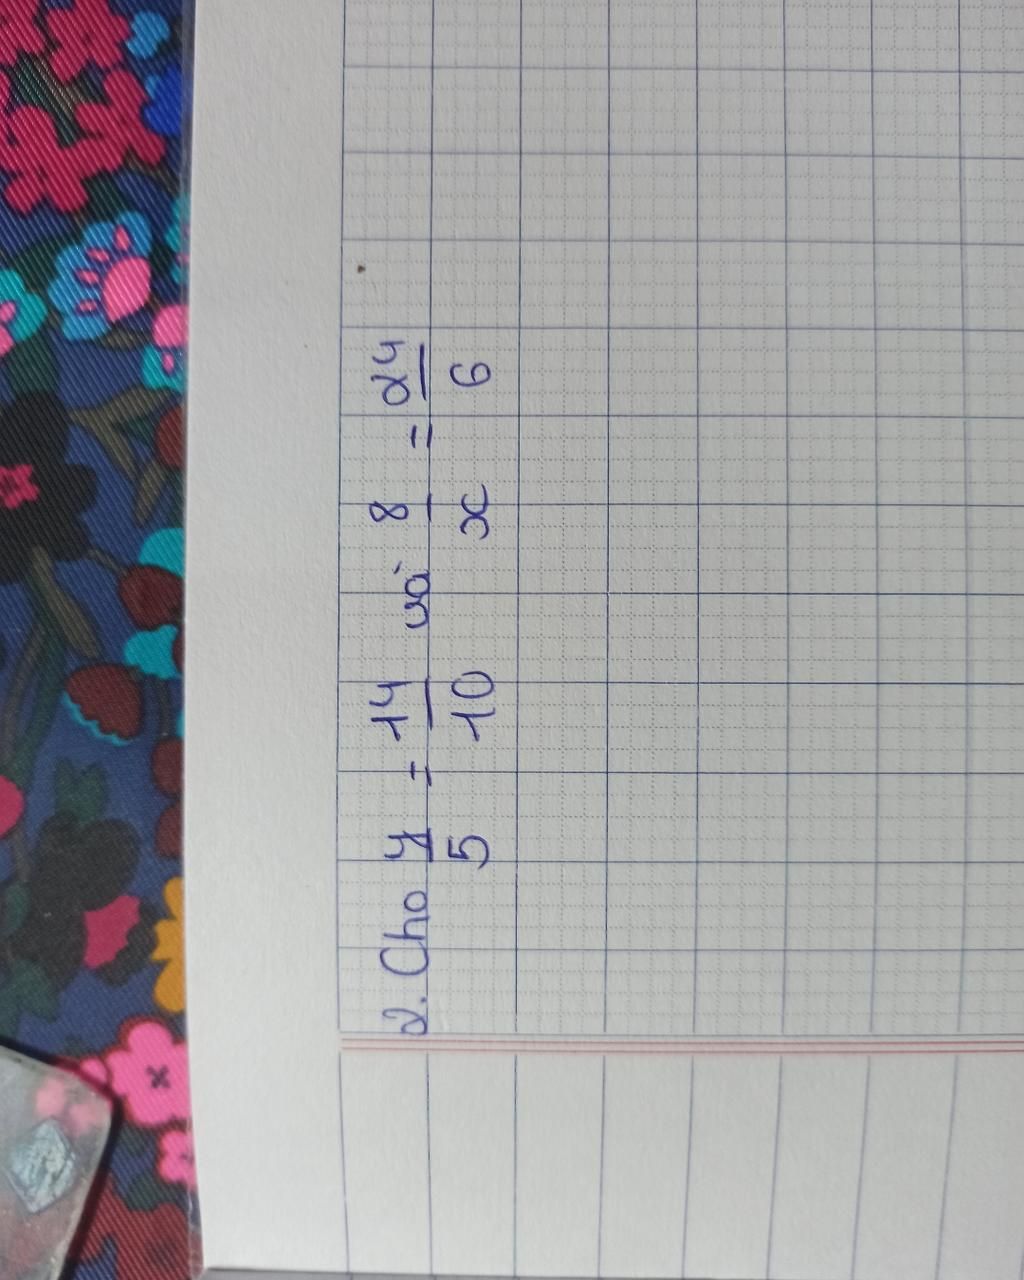 2. Cho y/5 = 14/10 và 8/x = 24/6